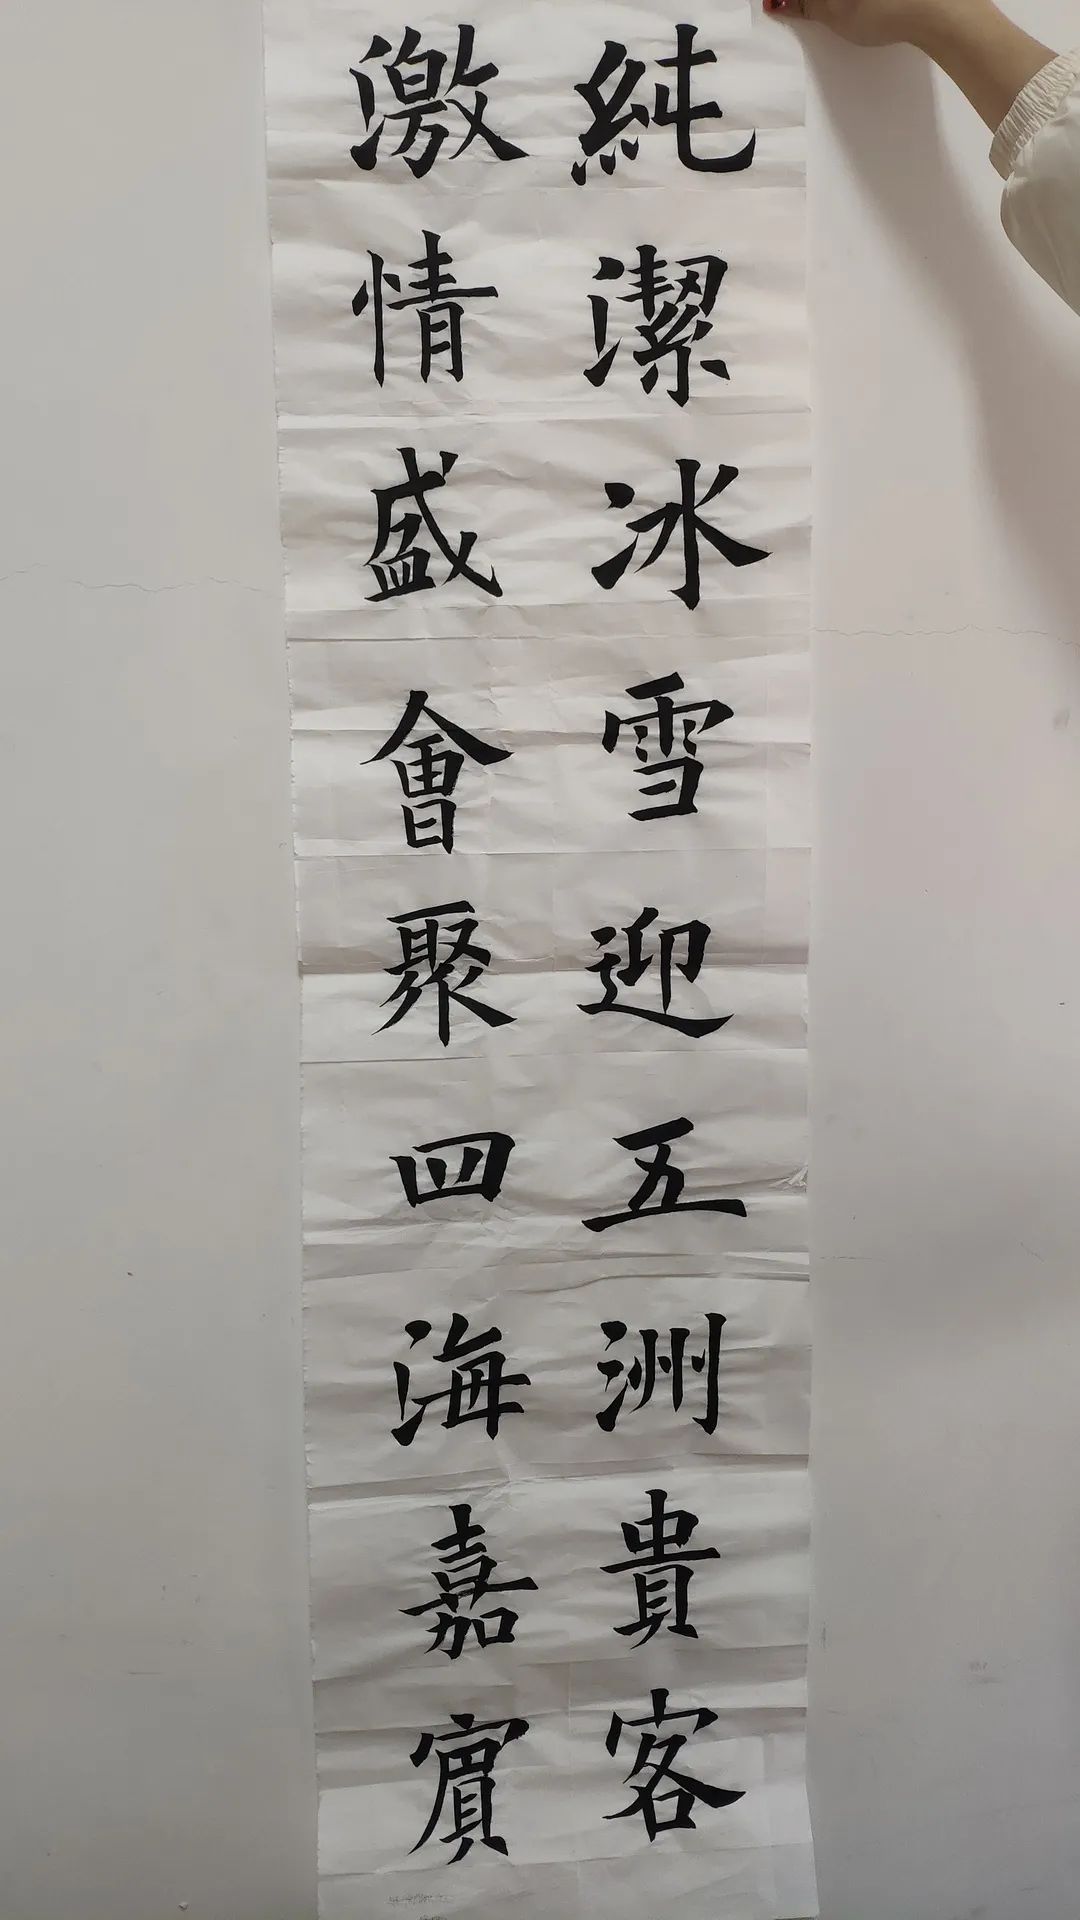 純潔冰雪迎五洲貴客
激情盛會聚四海嘉賓